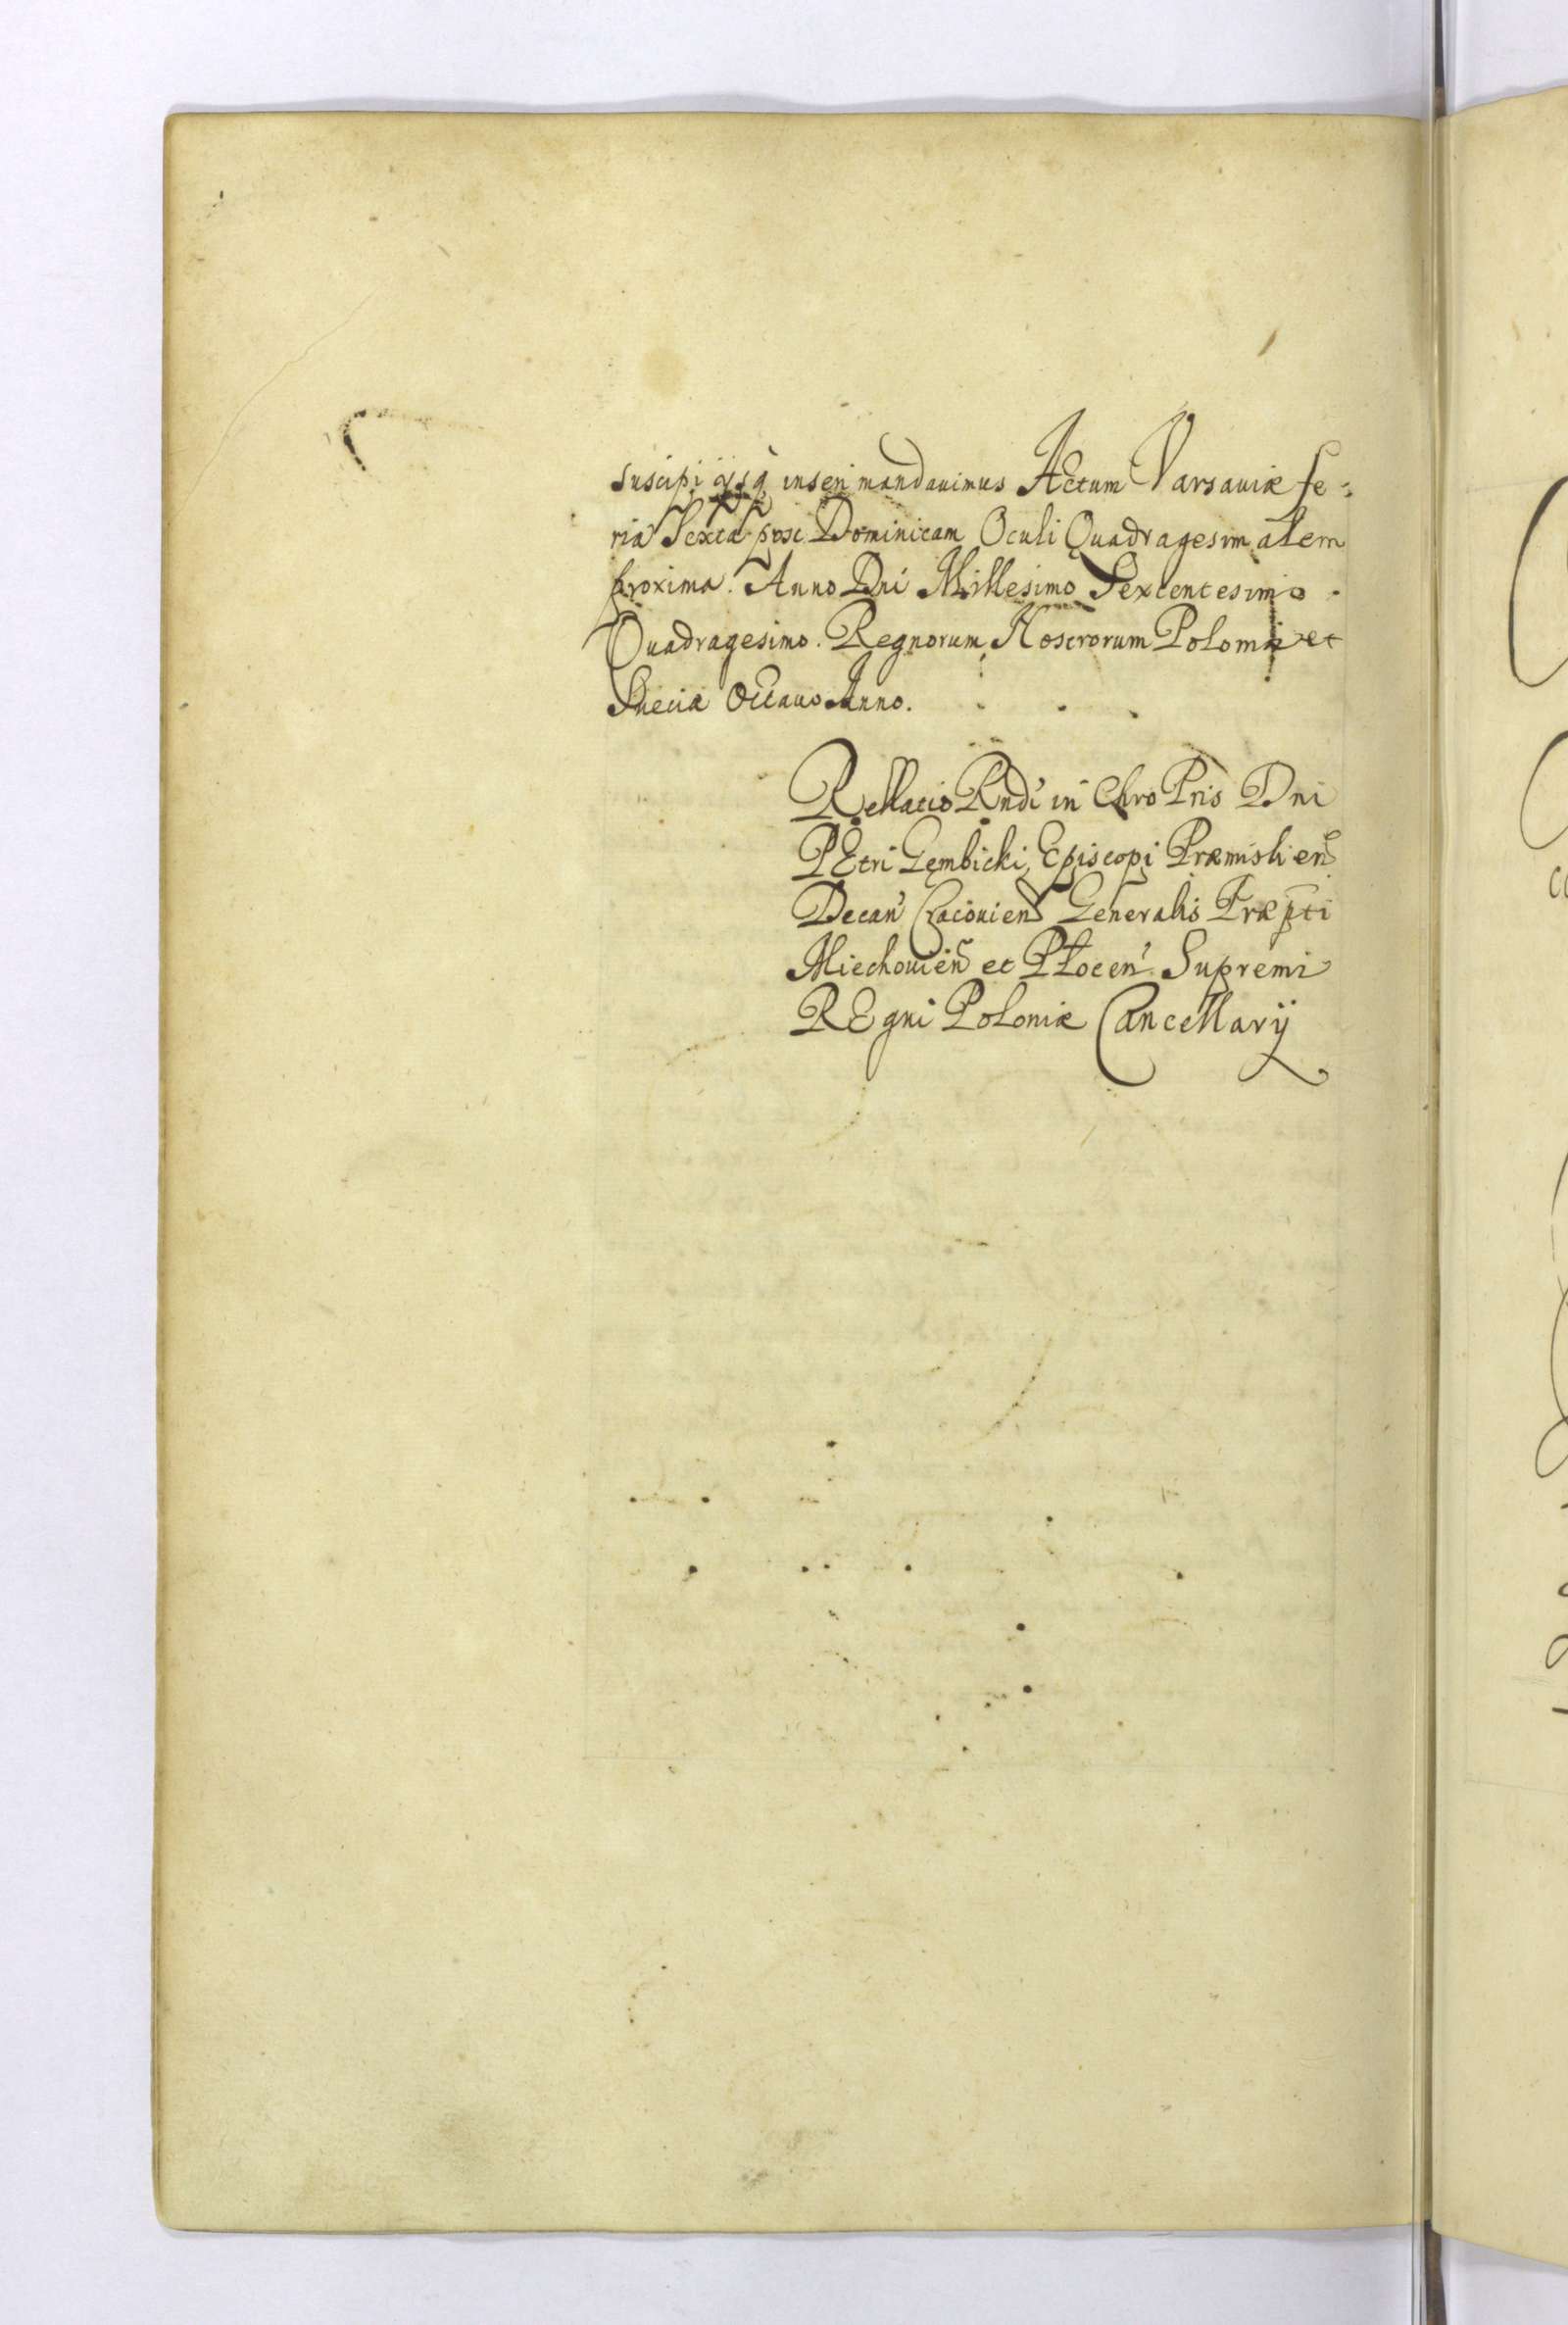 suscipi ijsq̀ inseri mandauimus Actum Varsauiæ fe-
ria Sexta post Dominicam Oculi Quadragesimalem
proxima. Anno Dni Millesimo Sexcentesimo
Quadragesimo. Regnorum Nostrorum Poloniæ et
Sueciæ Octauo Anno.
Rellatio Rndi in Chro Pris Dni
PEtri Gembicki, Episcopi Præmislien
Decan Cracouien Generalis Præpti
Miechouien et Płocen Supremi
REgni Poloniæ Cancellarij